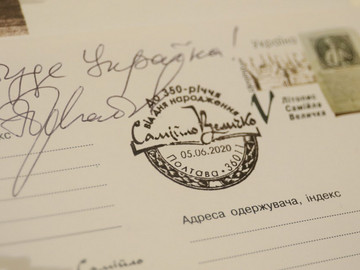 уде Україна!
Україна
До 350-річчя
від дня народження
Самійло Величко
05.06.2020
Полтава • 36011
Літопис
Самійла
Величка
Адреса одержувача, індекс
Самійло